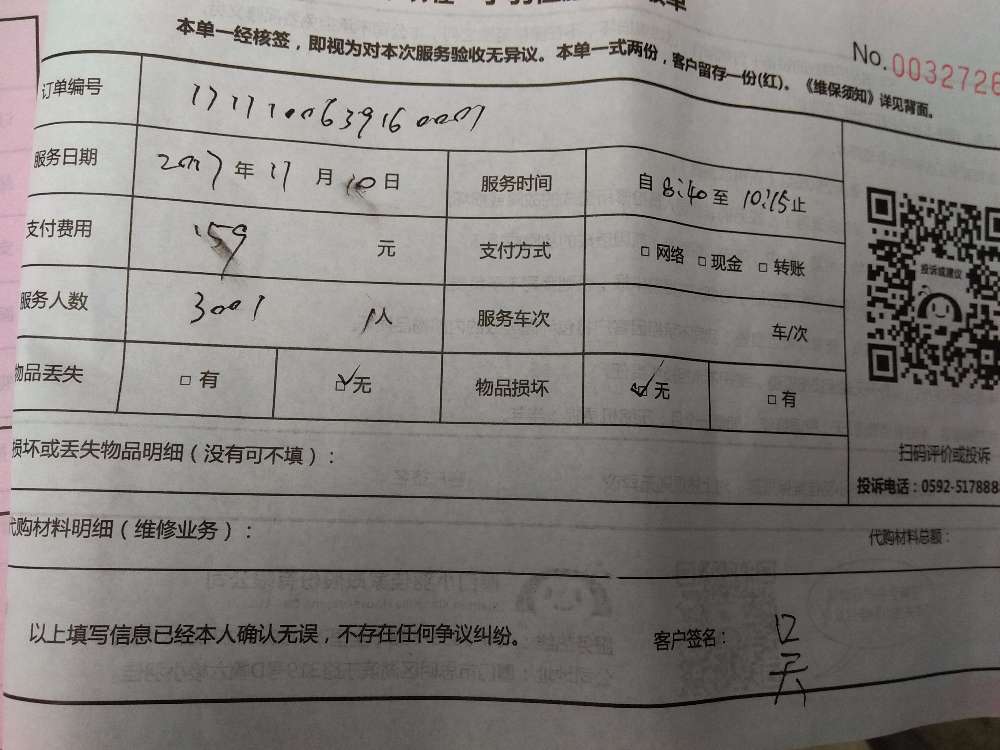 本单一经核签，即视为对本次服务验收无异议。本单一式两份，客户留存一份(红)。《维保须知》详见背面。
No. 0032726
订单编号 1711100639160001
服务日期 2017年11月10日 服务时间 自8:40至10:15止
支付费用 159 元 支付方式 □ 网络 □ 现金 □ 转账
服务人数 3001 1人 服务车次 车/次
物品丢失 □ 有 ☑无 物品损坏 ☑无 □ 有
投诉或建议
扫码评价或投诉
投诉电话：0592-517888
损坏或丢失物品明细（没有可不填）：
代购材料明细（维修业务）： 代购材料总额：
以上填写信息已经本人确认无误，不存在任何争议纠纷。 客户签名：